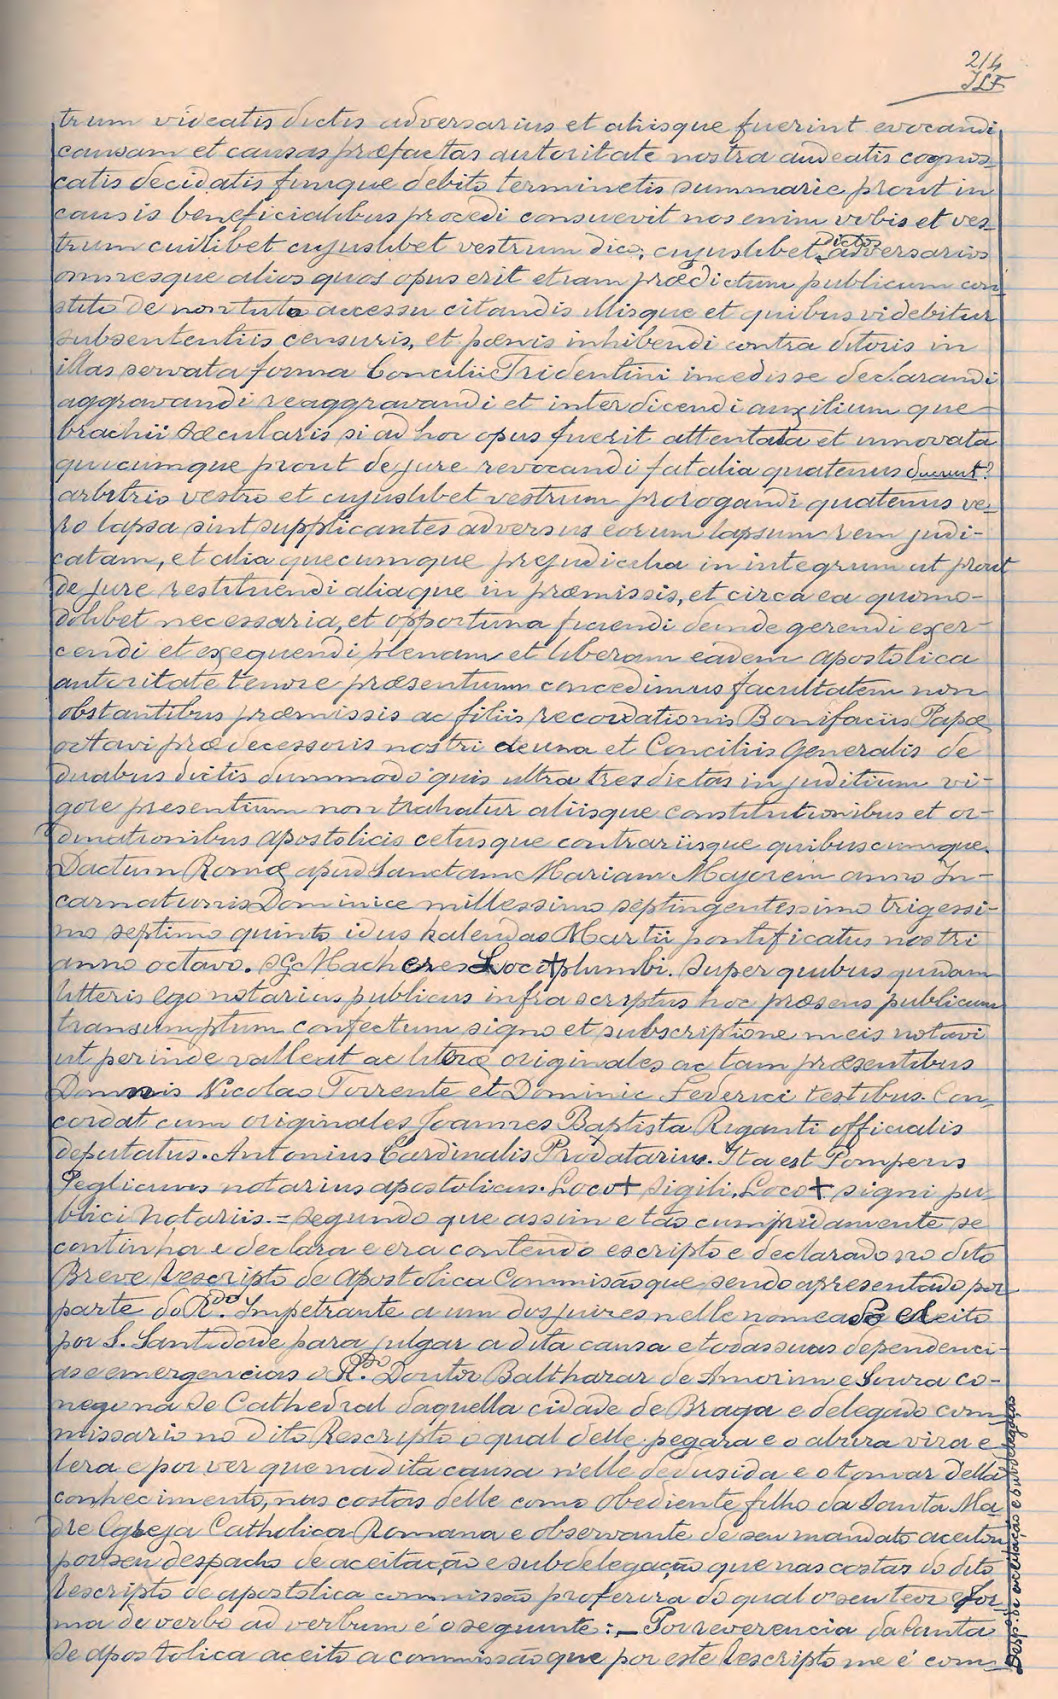 214
JLF
trum videatis dictis adversarius et aliisque fuerint evocandi
causam et causas præfactas autoritate nostra audeatis cognos-
catis decidatis finique debito terminetis summarie prout in
causis beneficialibus procedi consuevit nos enim vobis et ves-
trum cuilibet cujuslibet vestrum dico, cujuslibet dictos adversarios
omnesque alios quos opus erit etiam prædictum publicum con-
stito de non tuto accessu citandis illisque et quibus videbitur
subsententiis censuris, et pænis inhibendi contra ditoris in
illas servata forma Concilii Tridentini incedisse declarandi
aggravandi reaggravandi et interdicendi auxilium que
brachii sæcularis si ad hoc opus fuerit attentata et innovata
quicumque prout de jure revocandi fatalia quatenus durent?
arbitrio vestro et cujuslibet vestrum prorogandi quatenus ve-
ro lapsa sint supplicantes adversus eorum lapsum rem judi-
catam, et alia quecumque prejudicilia in integrum ut prout
de jure restituendi aliaque in præmissis, et circa ea quomo-
dolibet necessaria, et opportuna faciendi deinde gerendi exer-
cendi et exequendi plenam et liberam eadem apostolica
autoritate tenore præsentium concedimus facultatem non
obstantibus præmissis ac filiis recordationis Bonifaciis Papæ
octavi prædecessoris nostri de una et Conciliis Generalis de
duabus dictis dummodo quis ultra tres dictas in juditium vi-
gore presentium non trahatur aliisque constitutionibus et or-
dinationibus apostolicis cetusque contrariisque quibuscumque.
Dactum Romæ apud Sanctam Mariam Majorem anno In-
carnaturnis Dominice millessimo septingentessimo trigessi-
mo septimo quinto idus kalendas Martii pontificatus nostri
anno octavo. SG Macheres Loco + plumbi. Super quibus quidam
litteris ego notarius publicus infra scriptus hoc præsens publicum
transumptum confectum signo et subscriptione meis notavi
ut perinde valleat ac literæ originales ac tam præsentibus
Domnis Nicolao Torrente et Dominic Federici testibus. Con-
cordat cum originales Joannes Baptista Riganti officialis
deputatus. Antonius Cardinalis Prodatarius. Ita est Pomperis
Peglicuus notarius apostolicus. Loco + sigili. Loco + signi pu-
blici Notariis. = Segundo que assim e tão cumpridamente se
continha e declara e era contendo escripto e declarado no dito
Breve Rescripto de Apostolica Commisão que sendo apresentado por
parte do Rdo. Impetrante a um dos juires nelle nomeado e eleito
por S. Santidade para julgar a dita causa e todas suas dependenci-
as e emergencias o Rdo. Doutor Balthazar de Amorim e Souza co-
nego na Se Cathedral daquella cidade de Braga e delegado com-
missario no dito Rescripto o qual delle pegara e o abrira vira e
lera e por ver que na dita causa n'elle dedusida e o tomar d'ella
conhecimento, nas costas delle como obediente filho da Santa Ma-
dre Egreja Catholica Romana e observante de seu mandato aceitou
por seu despacho de aceitação e subdelegação que nas costas do dito
Rescripto de apostolica commissão proferira do qual o seu teor e for-
ma de verbo ad verbum é o seguinte: — Por reverencia da Santa
Se apostolica aceito a commissão que por este Rescripto me é com-
Desp. de aceitação e subdelegação